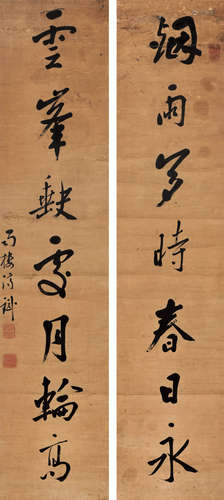 烟雨多時春日永
雲峯缺處月輪高